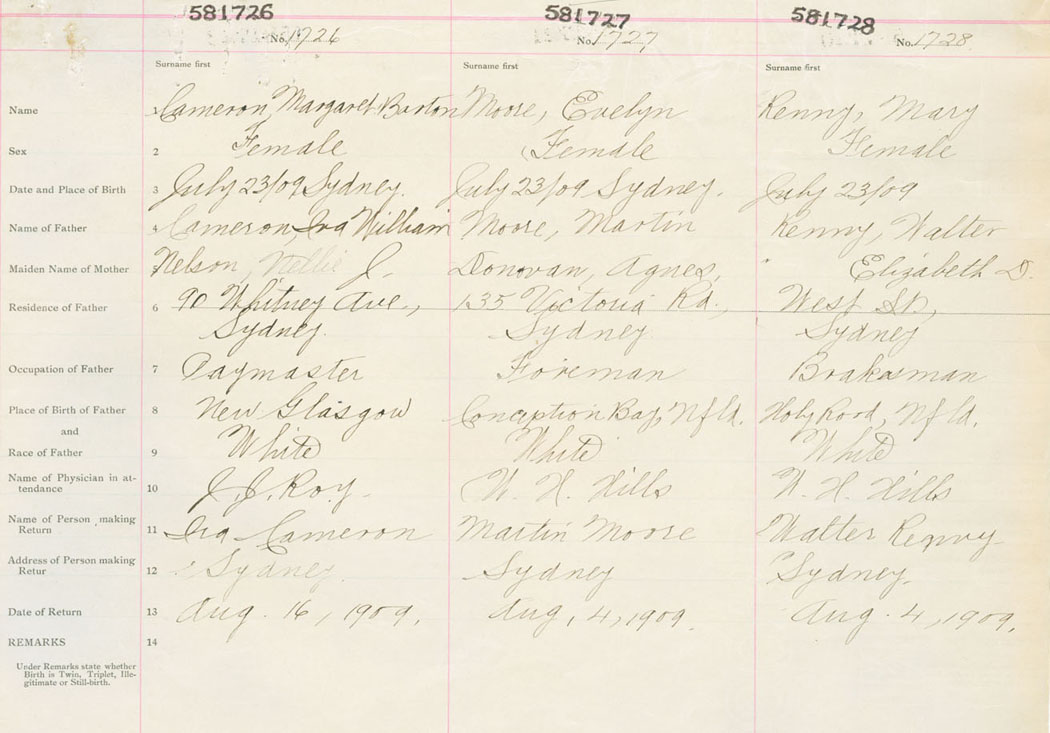 581726 581727 581728
No. 1726 No. 1727 No. 1728
Surname first Surname first Surname first
Name 1 Cameron, Margaret Barton Moore, Evelyn Kenny, Mary
Sex 2 Female Female Female
Date and Place of Birth 3 July 23/09 Sydney. July 23/09 Sydney. July 23/09
Name of Father 4 Cameron, Ira William Moore, Martin Kenny, Walter
Maiden Name of Mother Nelson, Nellie J. Donovan, Agnes, " Elizabeth D.
Residence of Father 6 90 Whitney Ave., 135 Victoria Rd., West St.,
Sydney. Sydney Sydney
Occupation of Father 7 Paymaster Foreman Brakesman
Place of Birth of Father 8 New Glasgow Conception Bay, Nfld. Holy Rood, Nfld.
and
Race of Father 9 White White White
Name of Physician in at-
tendance 10 J. J. Roy. W. H. Hills W. H. Hills
Name of Person making
Return 11 Ira Cameron Martin Moore Walter Kenny
Address of Person making
Retur 12 Sydney. Sydney Sydney.
Date of Return 13 Aug. 16, 1909. Aug, 4, 1909. Aug. 4, 1909.
REMARKS 14
Under Remarks state whether
Birth is Twin, Triplet, Ille-
gitimate or Still-birth.